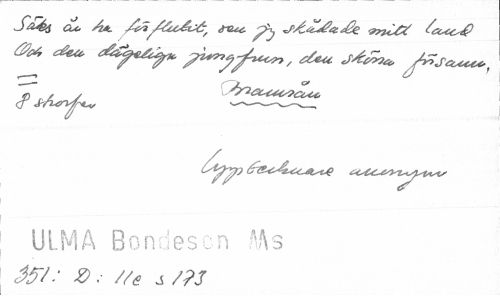 Sex år ha förflutit, sen jg skådade mitt land
Och den dägeliga jungfrun, den sköna
=
8 strofer
Bramsån
Upptecknare anonym
ULMA Bondeson Ms
351: D: 11e s 173